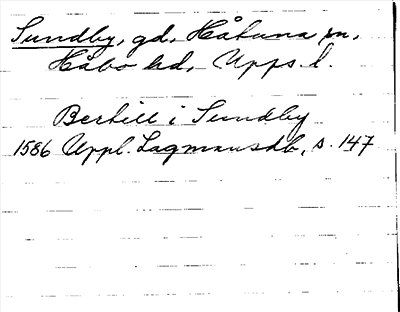 Sundby, gd, Håtuna sn,
Håbo hd, Upps. l.
Bertill i Sundby
1586 Uppl. Lagmansdb, s. 147